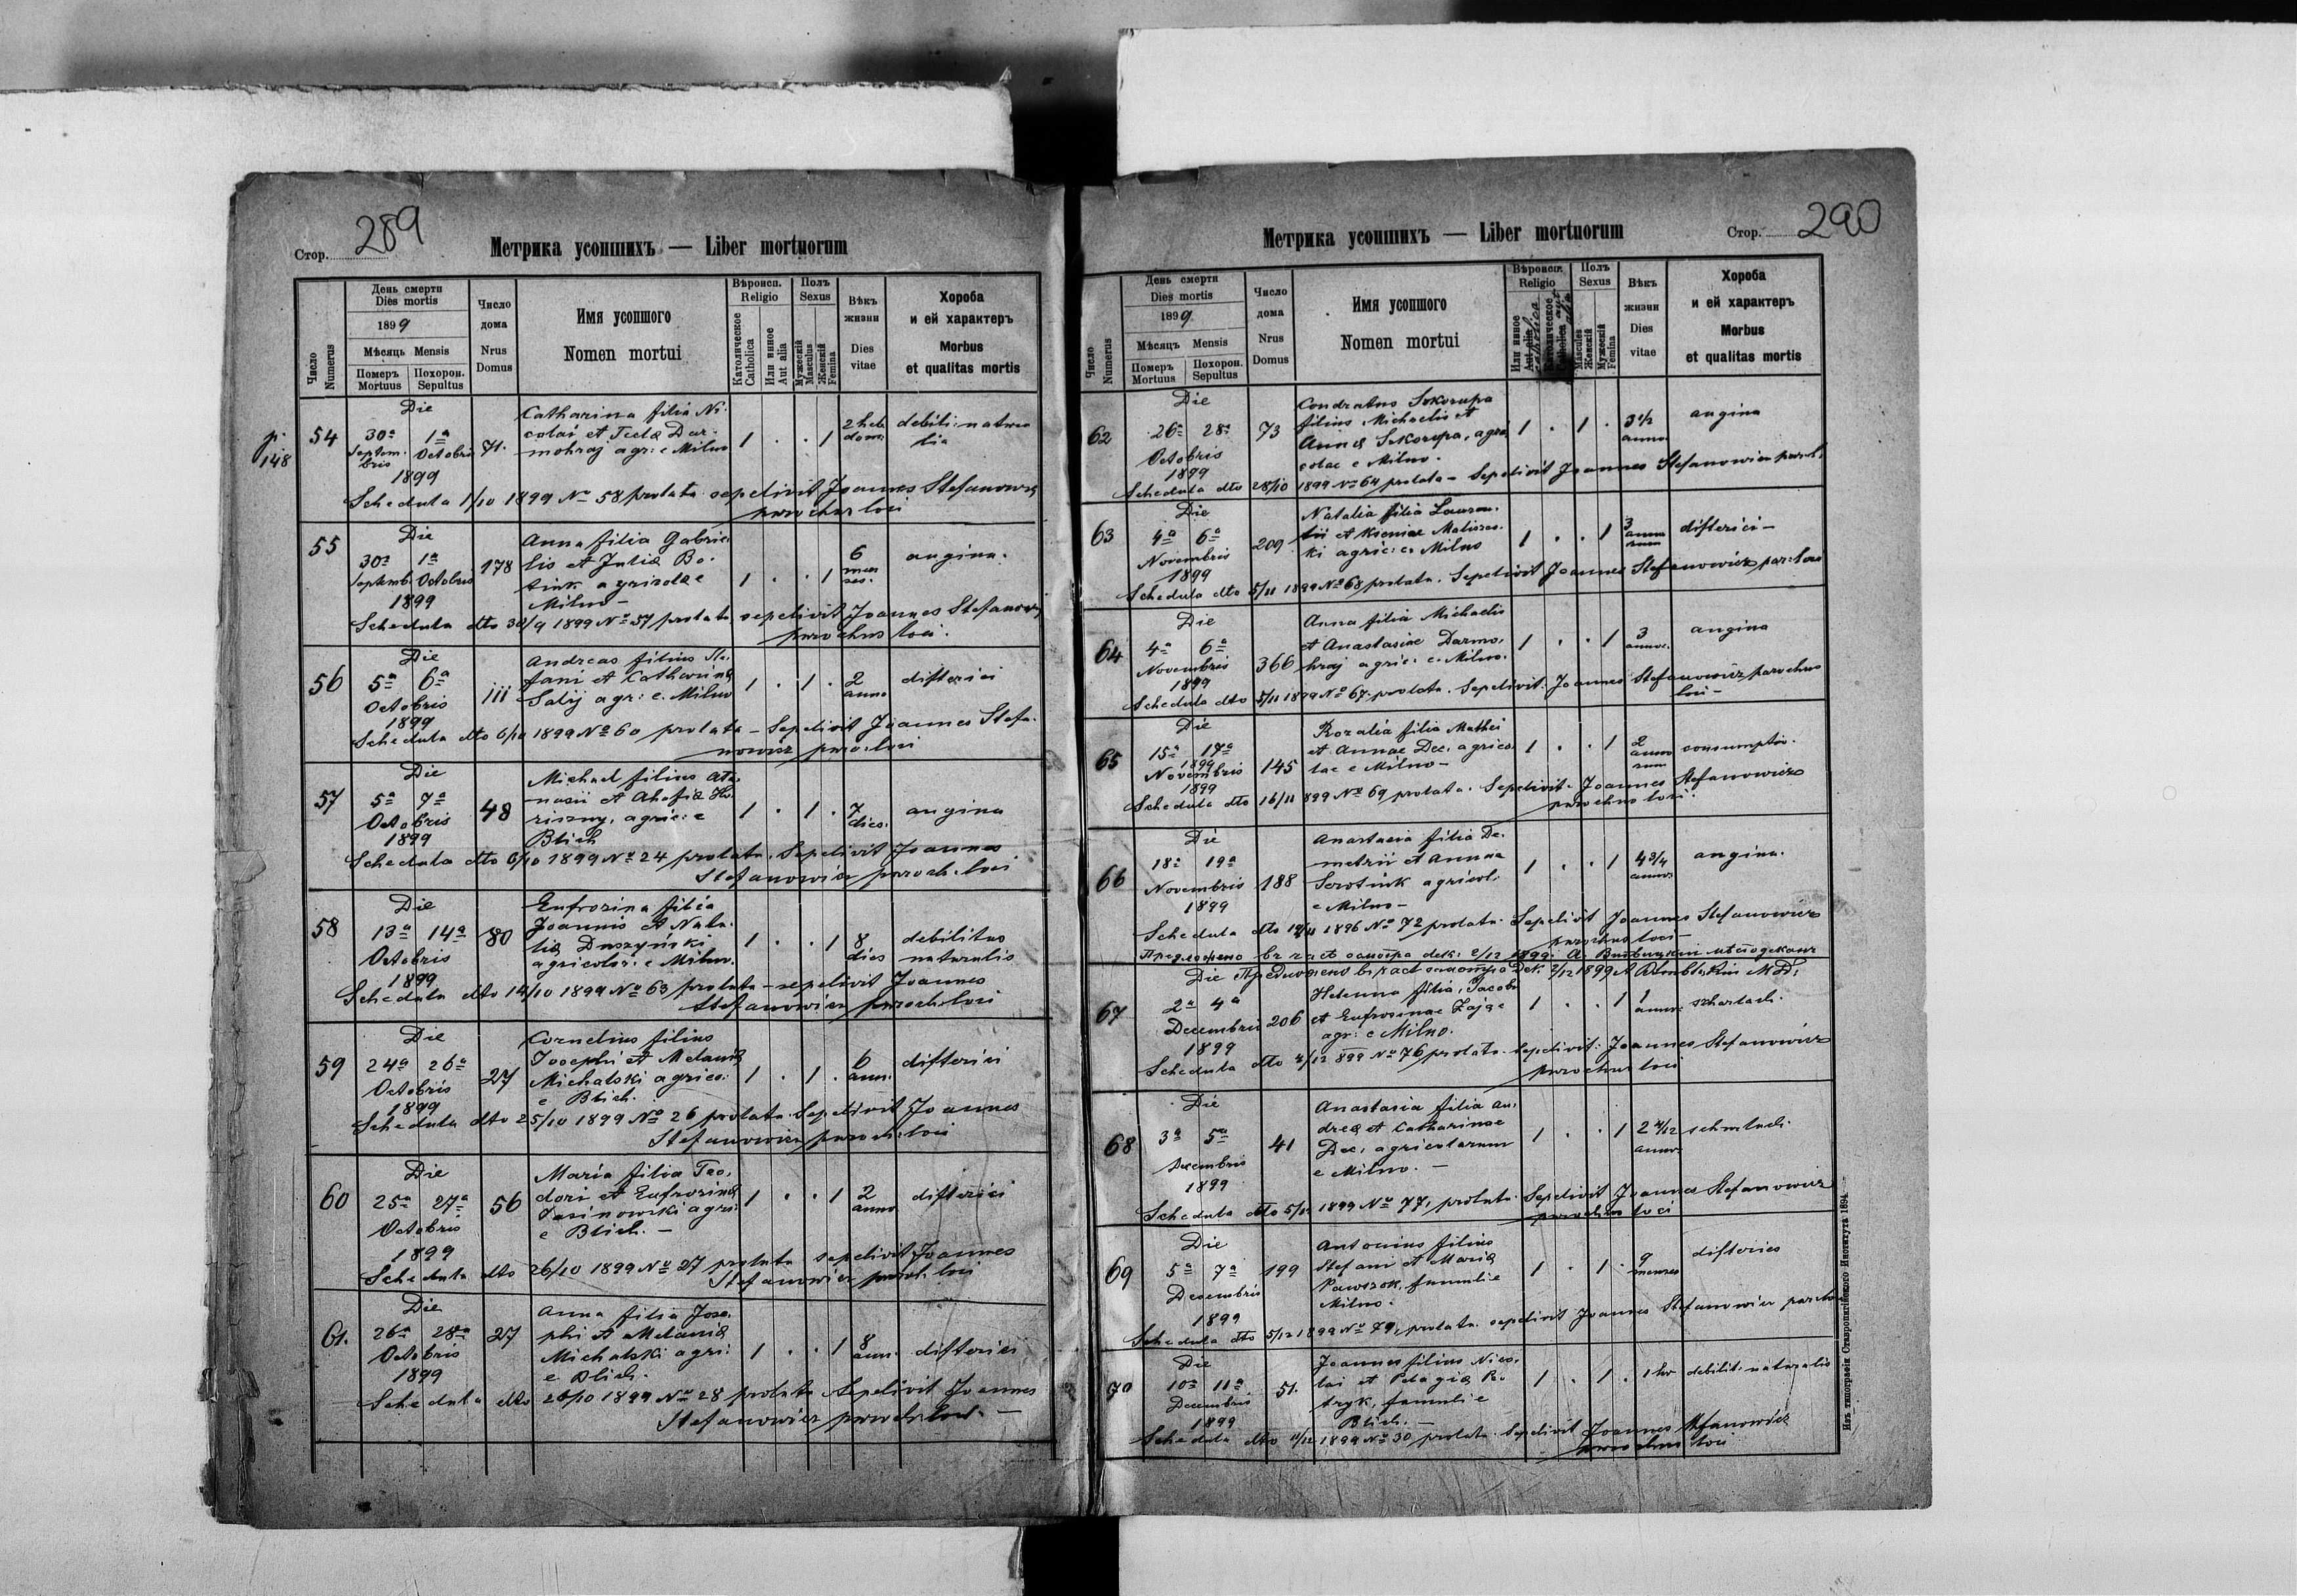 289
Стор.
Метрика усопшихъ — Liber mortuorum
Число
Numerus
День смерти
Dies mortis
1899
Мѣсяць Mensis
Померъ
Mortuus
Похорон.
Sepultus
Число
дома
Nrus
Domus
Имя усопшого
Nomen mortui
Вѣроисп.
Religio
Католическое
Catholica
Или инное
Aut alia
Полъ
Sexus
Мужескій
Masculus
Женскій
Femina
Вѣкъ
жизни
Dies
vitae
Хороба
и ей характеръ
Morbus
et qualitas mortis
p.
148
54
Die
30a 1a
Septem-
bris
Octobris
1899
71.
Catharina filia Ni-
colai et Teclæ Dar-
mohraj agr: e Milno
1 . . 1
2 heb
dom.
debili: natura
lis
Scheduta 1/10 1899 No 58 prolata sepelivit Joannes Stefanowicz
parochus loci
55
Die
30a 1a
Septemb. Octobris
1899
178
Anna filia Gabrie
lis et Juliæ Bo-
tiuk agricolæ e
Milno —
1 . . 1
6
men
ses.
angina.
Scheduta dto 30/9 1899 No 57 prolata, sepelivit Joannes Stefanowicz
parochus loci.
56
Die
5a 6a
Octobris
1899
111
Andreas filius Ste-
fani et Catharinæ
Salij agr: e Milno
1 . 1 .
2
anno
difterici
Scheduta dto 6/10 1899 No 60 prolata — Sepelivit Joannes Stefa-
nowicz paroch: loci
57
Die
5a 7a
Octobris
1899
48
Michael filius Ata-
nasii et Ahafiæ Ho-
riszny, agric: e
Blich
1 . 1 .
7
dies.
angina
Scheduta dto 6/10 1899 No 24 prolata. Sepelivit Joannes
Stefanowicz paroch: loci
58
Die
13a 14a
Octobris
1899
80
Eufrozina filia
Joannis et Nata-
liæ Duszynski
agricolar: e Milno.
1 . . 1
8
dies
debilitas
naturalis
Scheduta dto 14/10 1899 No 63 prolata — sepelivit Joannes
Stefanowicz paroch: loci
59
Die
24a 26a
Octobris
1899
27
Cornelius filius
Josephi et Melaniæ
Michalski agrico:
e Blich.
1 . 1 .
6
ann.
difterici
Scheduta dto 25/10 1899 No 26 prolata. Sepelivit Joannes
Stefanowicz paroch: loci
60
Die
25a 27a
Octobris
1899
56
Maria filia Teo-
dori et Eufrozinæ
Jasinowski agri:
e Blich. —
1 . . 1
2
anno
difterici
Scheduta dto 26/10 1899 No 27 prolata sepelivit Joannes
Stefanowicz paroch: loci
61.
Die
26a 28a
Octobris
1899
27
Anna filia Jose-
phi et Melaniæ
Michalski agri:
e Blich.
1 . . 1
8
ann.
difterici
Scheduta dto 26/10 1899 No 28 prolata Sepelivit Joannes
Stefanowicz paroch: loci. —
Метрика усопшихъ — Liber mortuorum
Стор.
290
Число
Numerus
День смерти
Dies mortis
1899.
Мѣсяць Mensis
Померъ
Mortuus
Похорон.
Sepultus
Число
дома
Nrus
Domus
Имя усопшого
Nomen mortui
Вѣроисп.
Religio
Или инное
Aut alia
catholica
Католическое
Catholica
aut
alia
Полъ
Sexus
Masculus
Женскій
Мужескій
Femina
Вѣкъ
жизни
Dies
vitae
Хороба
и ей характеръ
Morbus
et qualitas mortis
62
Die
26a 28a
Octobris
1899
73
Condratus Skorupa
filius Michaelis et
Annæ Skorupa, agri
colae e Milno.
1 . 1 .
3 1/2
anno
angina
Scheduta dto 28/10 1899 No 64 prolata — Sepelivit Joannes Stefanowicz paroch:
63
Die
4a 6a
Novembris
1899
209
Natalia filia Lauren-
tii et Kseniae Matisze-
ki agric: e Milno
1 . . 1
3
anno
rum
difterici —
Scheduta dto 5/11 1899 No 68 prolata. Sepelivit Joannes Stefanowicz par: loci
64
Die
4a 6a
Novembris
1899
366
Anna filia Michaelis
et Anastasiae Darmo-
hraj agric: e Milno.
1 . . 1
3
annor.
angina
Scheduta dto 5/11 1899 No 67 prolata. Sepelivit: Joannes Stefanowicz parochus
loci —
65
Die
15a 17a
1899
Novembris
1899
145
Rozalia filia Mathei
et Annae Dec, agrico
lae e Milno —
1 . . 1
2
anno
rum
consumptio.
Scheduta dto 16/11 899 No 69 prolata. Sepelivit. Joannes Stefanowicz
parochus loci.
66
Die
18a 19a
Novembris
1899
188
Anastasia filia De-
metrii et Annae
Serotiuk agricol:
e Milno —
1 . . 1
4 3/4
annor.
angina.
Scheduta dto 19/11 1896 No 72 prolata. Sepelivit Joannes Stefanowicz
parochus loci —
Предложено въ часѣ осмотра дек. 2/12 1899.
67
Die
2a 4a
Decembris
1899
206
Helenna filia, Jacobi
et Eufrosinae Zając
agr: e Milno.
1 . . 1
1
annor.
szkarlach.
Scheduta dto 4/12 899 No 76 prolata. Sepelivit: Joannes Stefanowicz
parochus loci
68
Die
3a 5a
Decembris
1899
41
Anastasia filia An-
dreæ et Catharinae
Dec, agricolarum
e Milno. —
1 . . 1
2 4/12
annor.
schrlach.
Scheduta dto 5/12 1899 No 77, prolata. Sepelivit Joannes Stefanowicz
parochus loci
69
Die
5a 7a
Decembris
1899
199
Antonius filius
Stefani et Mariæ
Pawszok, famuli e
Milno.
1 . 1 .
9
menses
difteries
Scheduta dto 5/12 1899 No 79, prolata. sepelivit Joannes Stefanowicz par: loci
70
Die
10a 11a
Decembris
1899
51.
Joannes filius Nico-
lai et Pelagiæ Pe-
tryk, famuli e
Blich. —
1 . 1 .
1 hor
debilit: naturalis
Scheduta dto 11/12 1899 No 30 prolata. Sepelivit Joannes Stefanowicz
parochus loci
Изъ типографіи Ставропигійского Института 1894.